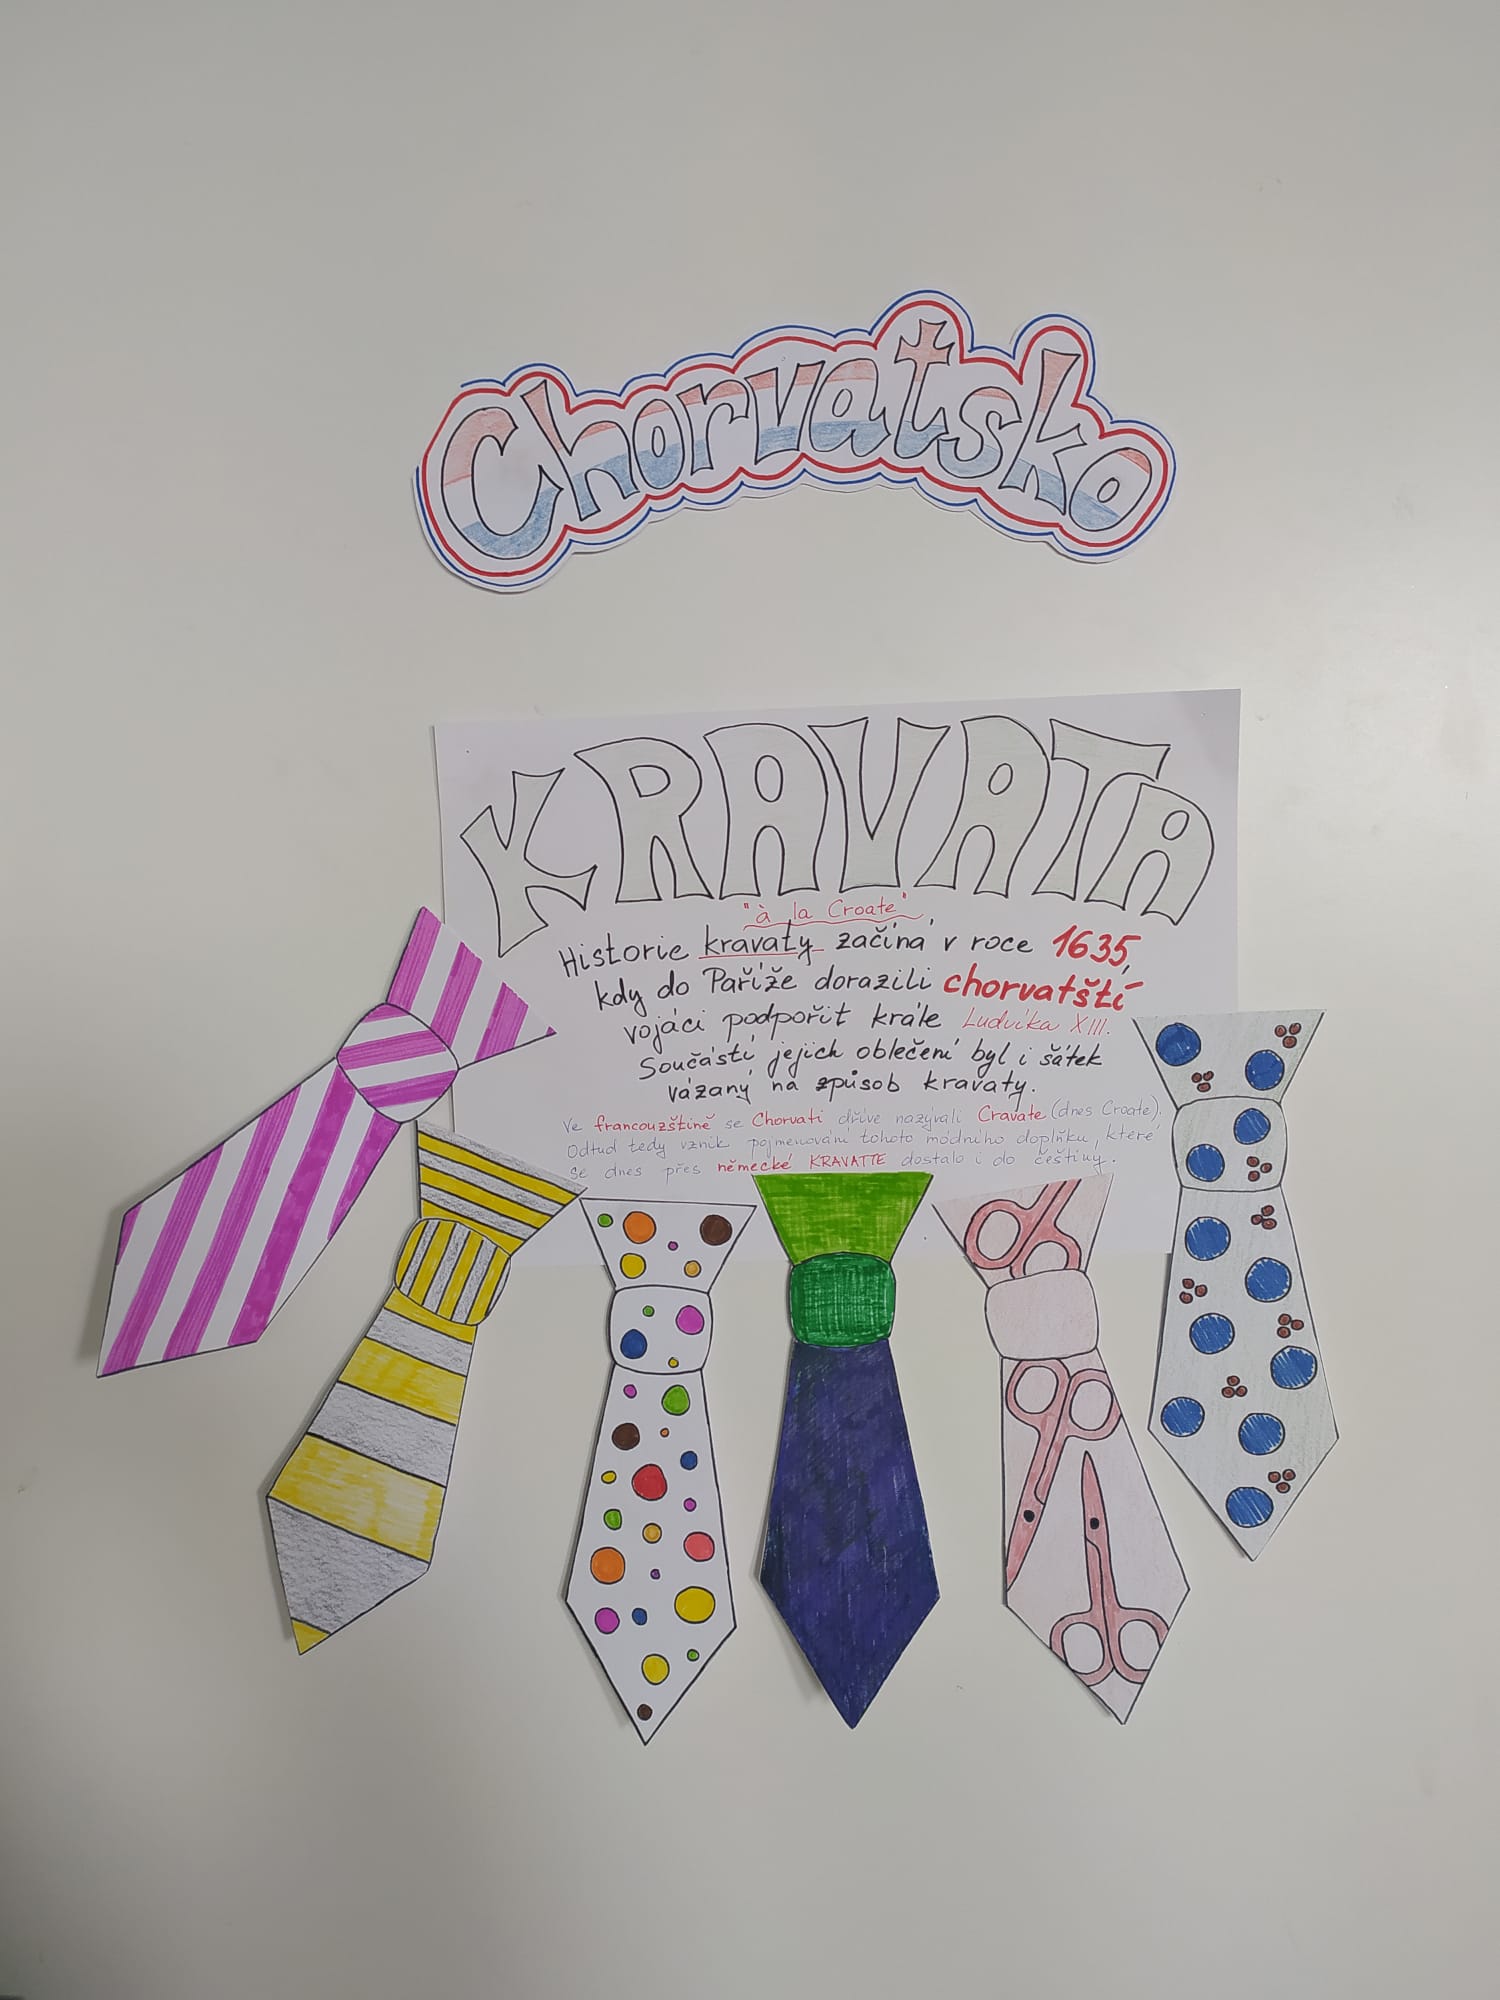 Chorvatsko
KRAVATA
"à la Croate"
Historie kravaty začíná v roce 1635,
kdy do Paříže dorazili chorvatští
vojáci podpořit krále Ludvíka XIII.
Součástí jejich oblečení byl i šátek
vázaný na způsob kravaty.
Ve francouzštině se Chorvati dříve nazývali Cravate (dnes Croate).
Odtud tedy vznik pojmenování tohoto módního doplňku, které
se dnes přes německé KRAVATTE dostalo i do češtiny.